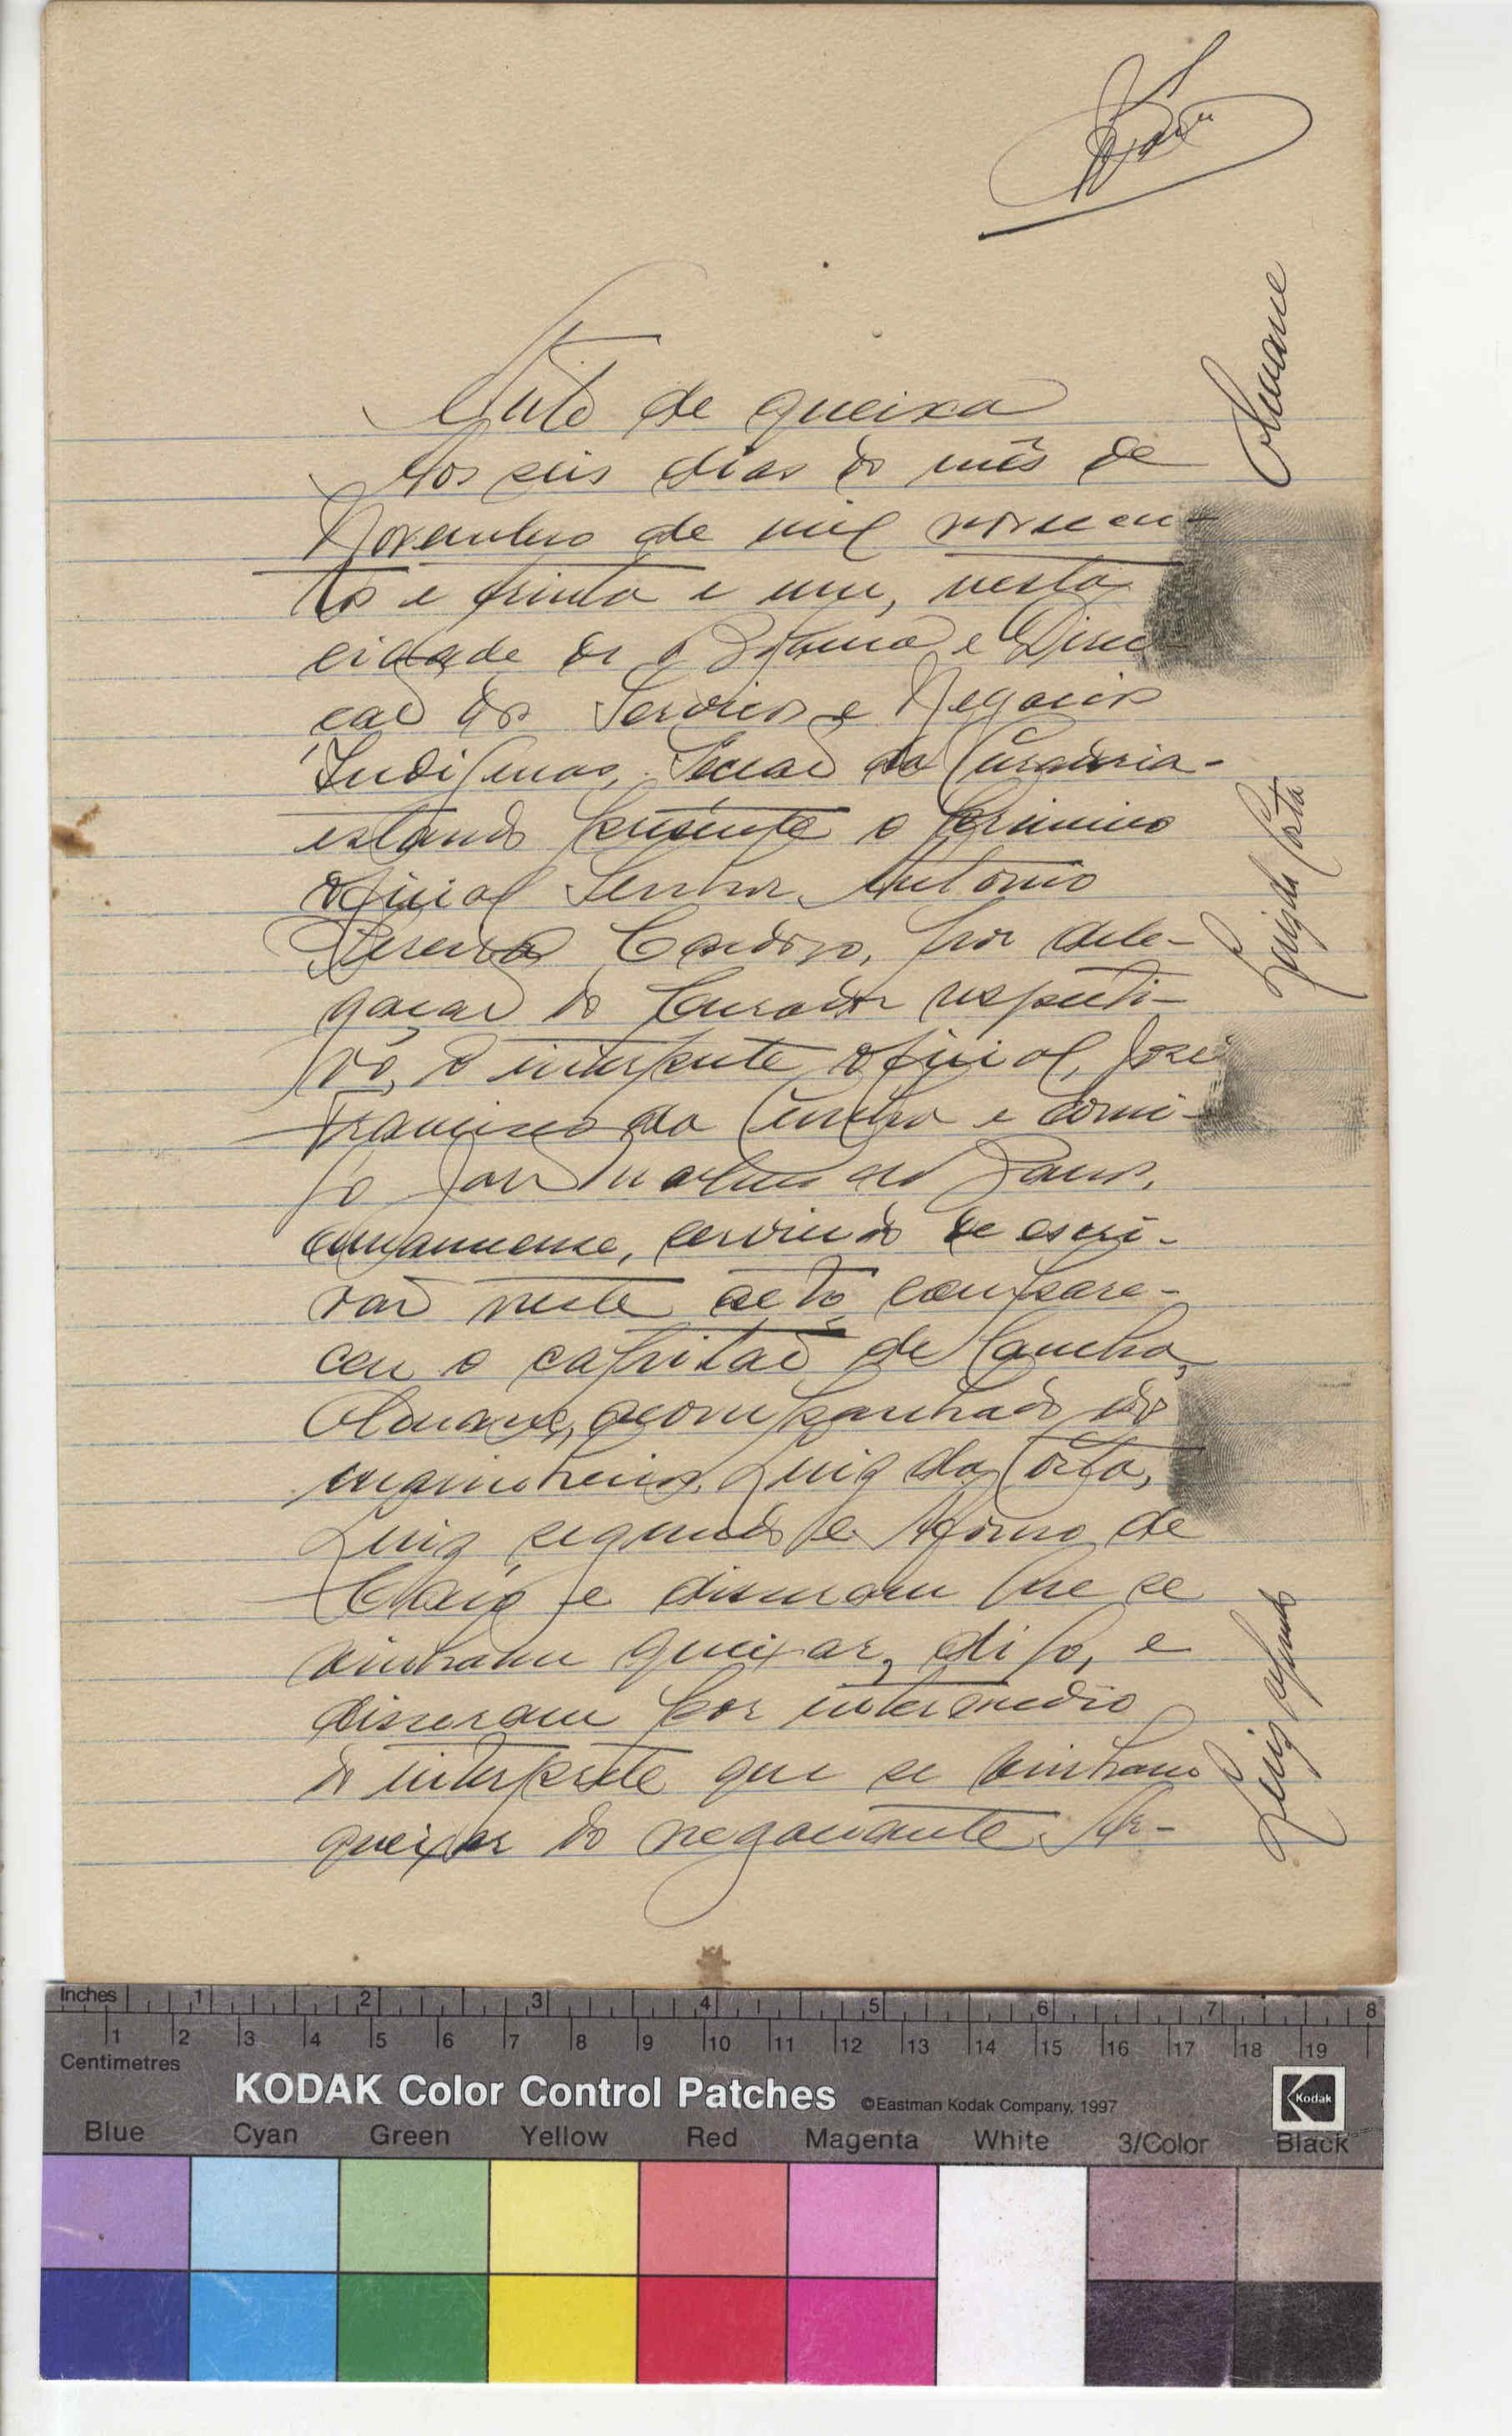 Auto de queixa
Aos seis dias do mês de
Novembro de mil novecen-
tos e trinta e um, nesta
cidade de Bolama e Direc
ção dos Serviços e Negocios
Indigenas, Secção da Curadoria-
estando presente o primeiro
oficial Senhor Antonio
Pereira Cardoso, por dele-
gação do Curador respecti-
vo, o interprete oficial, José
Francisco da Cunha e comi-
go
amanuense, servindo de escri-
vão neste acto, compare-
ceu o capitão de Cancha,
Olumane, acompanhado dos
marinheiros, Luiz da Costa,
Luiz segundo e Afonso de
e disseram que se
vinham queixar, digo, e
disseram por intermedio
do interprete que se vinham
queixar do negociante Ar-
Olumane
Luiz da Costa
Luiz segundo
Inches 1 2 3 4 5 6 7 8
Centimetres 1 2 3 4 5 6 7 8 9 10 11 12 13 14 15 16 17 18 19
KODAK Color Control Patches ©Eastman Kodak Company, 1997 Kodak
Blue Cyan Green Yellow Red Magenta White 3/Color Black